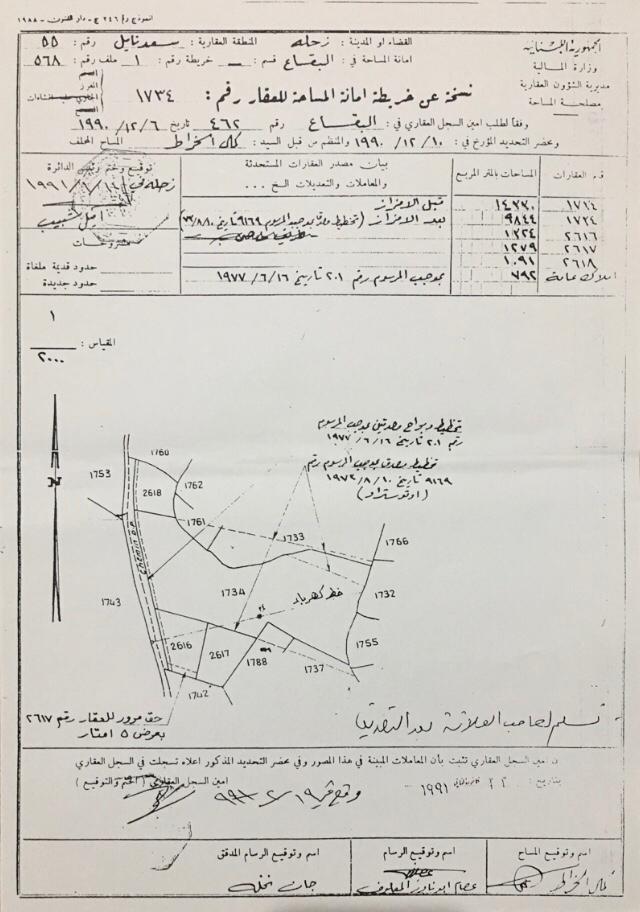 نموذج رقم ٢٤٦ ج - دار الفنون - ١٩٨٨
الجمهورية اللبنانية
وزارة المالية
مديرية الشؤون العقارية
مصلحة المساحة
القضاء او المدينة : زحله المنطقة العقارية : سعدنايل رقم : ٥٥
امانة المساحة في : البقاع قسم : — خريطة رقم : ١ ملف رقم : ٥٦٨
نسخة عن خريطة امانة المساحة للعقار رقم : ١٧٣٤
وفقا لطلب امين السجل العقاري في : البقاع رقم ٤٦٢ تاريخ ١٩٩٠/١٢/٦
وبحضر التحديد المؤرخ في : ١٩٩٠/١٢/١٠ والمنظم من قبل السيد : كمال الخراط المساح المحلف
رقم العقارات
المساحات بالمتر المربع
بيان مصدر العقارات المستحدثة
والمعاملات والتعديلات الخ . . .
توقيع وختم رئيس الدائرة
زحله في ١٩٩١/٦/١٤
ايل شبيب
١٧٣٤ ١٤٣٣٠ قبل الافراز
١٧٣٤ ٩٨٤٤ بعد الافراز (تخطيط مصدق بموجب المرسوم ٩١٦٩ تاريخ
٢٦١٦ ١٣٢٤
٢٦١٧ ١٢٧٩
٢٦١٨ ١٠٩١
املاك عامة ٧٩٢ بموجب المرسوم رقم ٢٠١ تاريخ ١٩٧٧/٦/١٦
حدود قديمة ملغاة
حدود جديدة
المقياس : ١
٢٠٠٠
N
تخطيط وبواح مصدقين بموجب المرسوم
رقم ٢٠١ تاريخ ١٩٧٧/٦/١٦
تخطيط مصدق بموجب المرسوم رقم
٩١٦٩ تاريخ ١٩٧٣/٨/١٠
(اوتوستراد)
1760
1753
2618
1762
1761
Chemin D.P
1733
1766
1734
خط كهرباء
1732
1743
٢٤
2616
2617
1788
1755
1737
1742
حق مرور للعقار رقم ٢٦١٧
بعرض ٥ امتار
تسلم لصاحب العلاقة بعد التصديق
ان امين السجل العقاري تثبت بأن المعاملات المبينة في هذا المصور وفي محضر التحديد المذكور اعلاه تسجلت في السجل العقاري
بتاريخ : ٢٢ كانون ثاني ١٩٩١
امين السجل العقاري ( الختم والتوقيع )
اسم وتوقيع المساح
اسم وتوقيع الرسام
اسم وتوقيع الرسام المدقق
كمال الخراط
عصام ابو نادر المعلوف
جان نخله